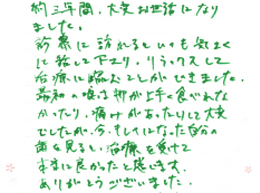 約三年間、大変お世話になり
ました。
診察に訪れるといつも気さく
に話して下さり、リラックスして
治療に臨むことができました。
最初の頃は物が上手く食べれな
かったり、痛みがあったりして大変
でしたが、今、キレイになった自分の
歯を見ると、治療を受けて
本当に良かったと感じます。
ありがとうございました。